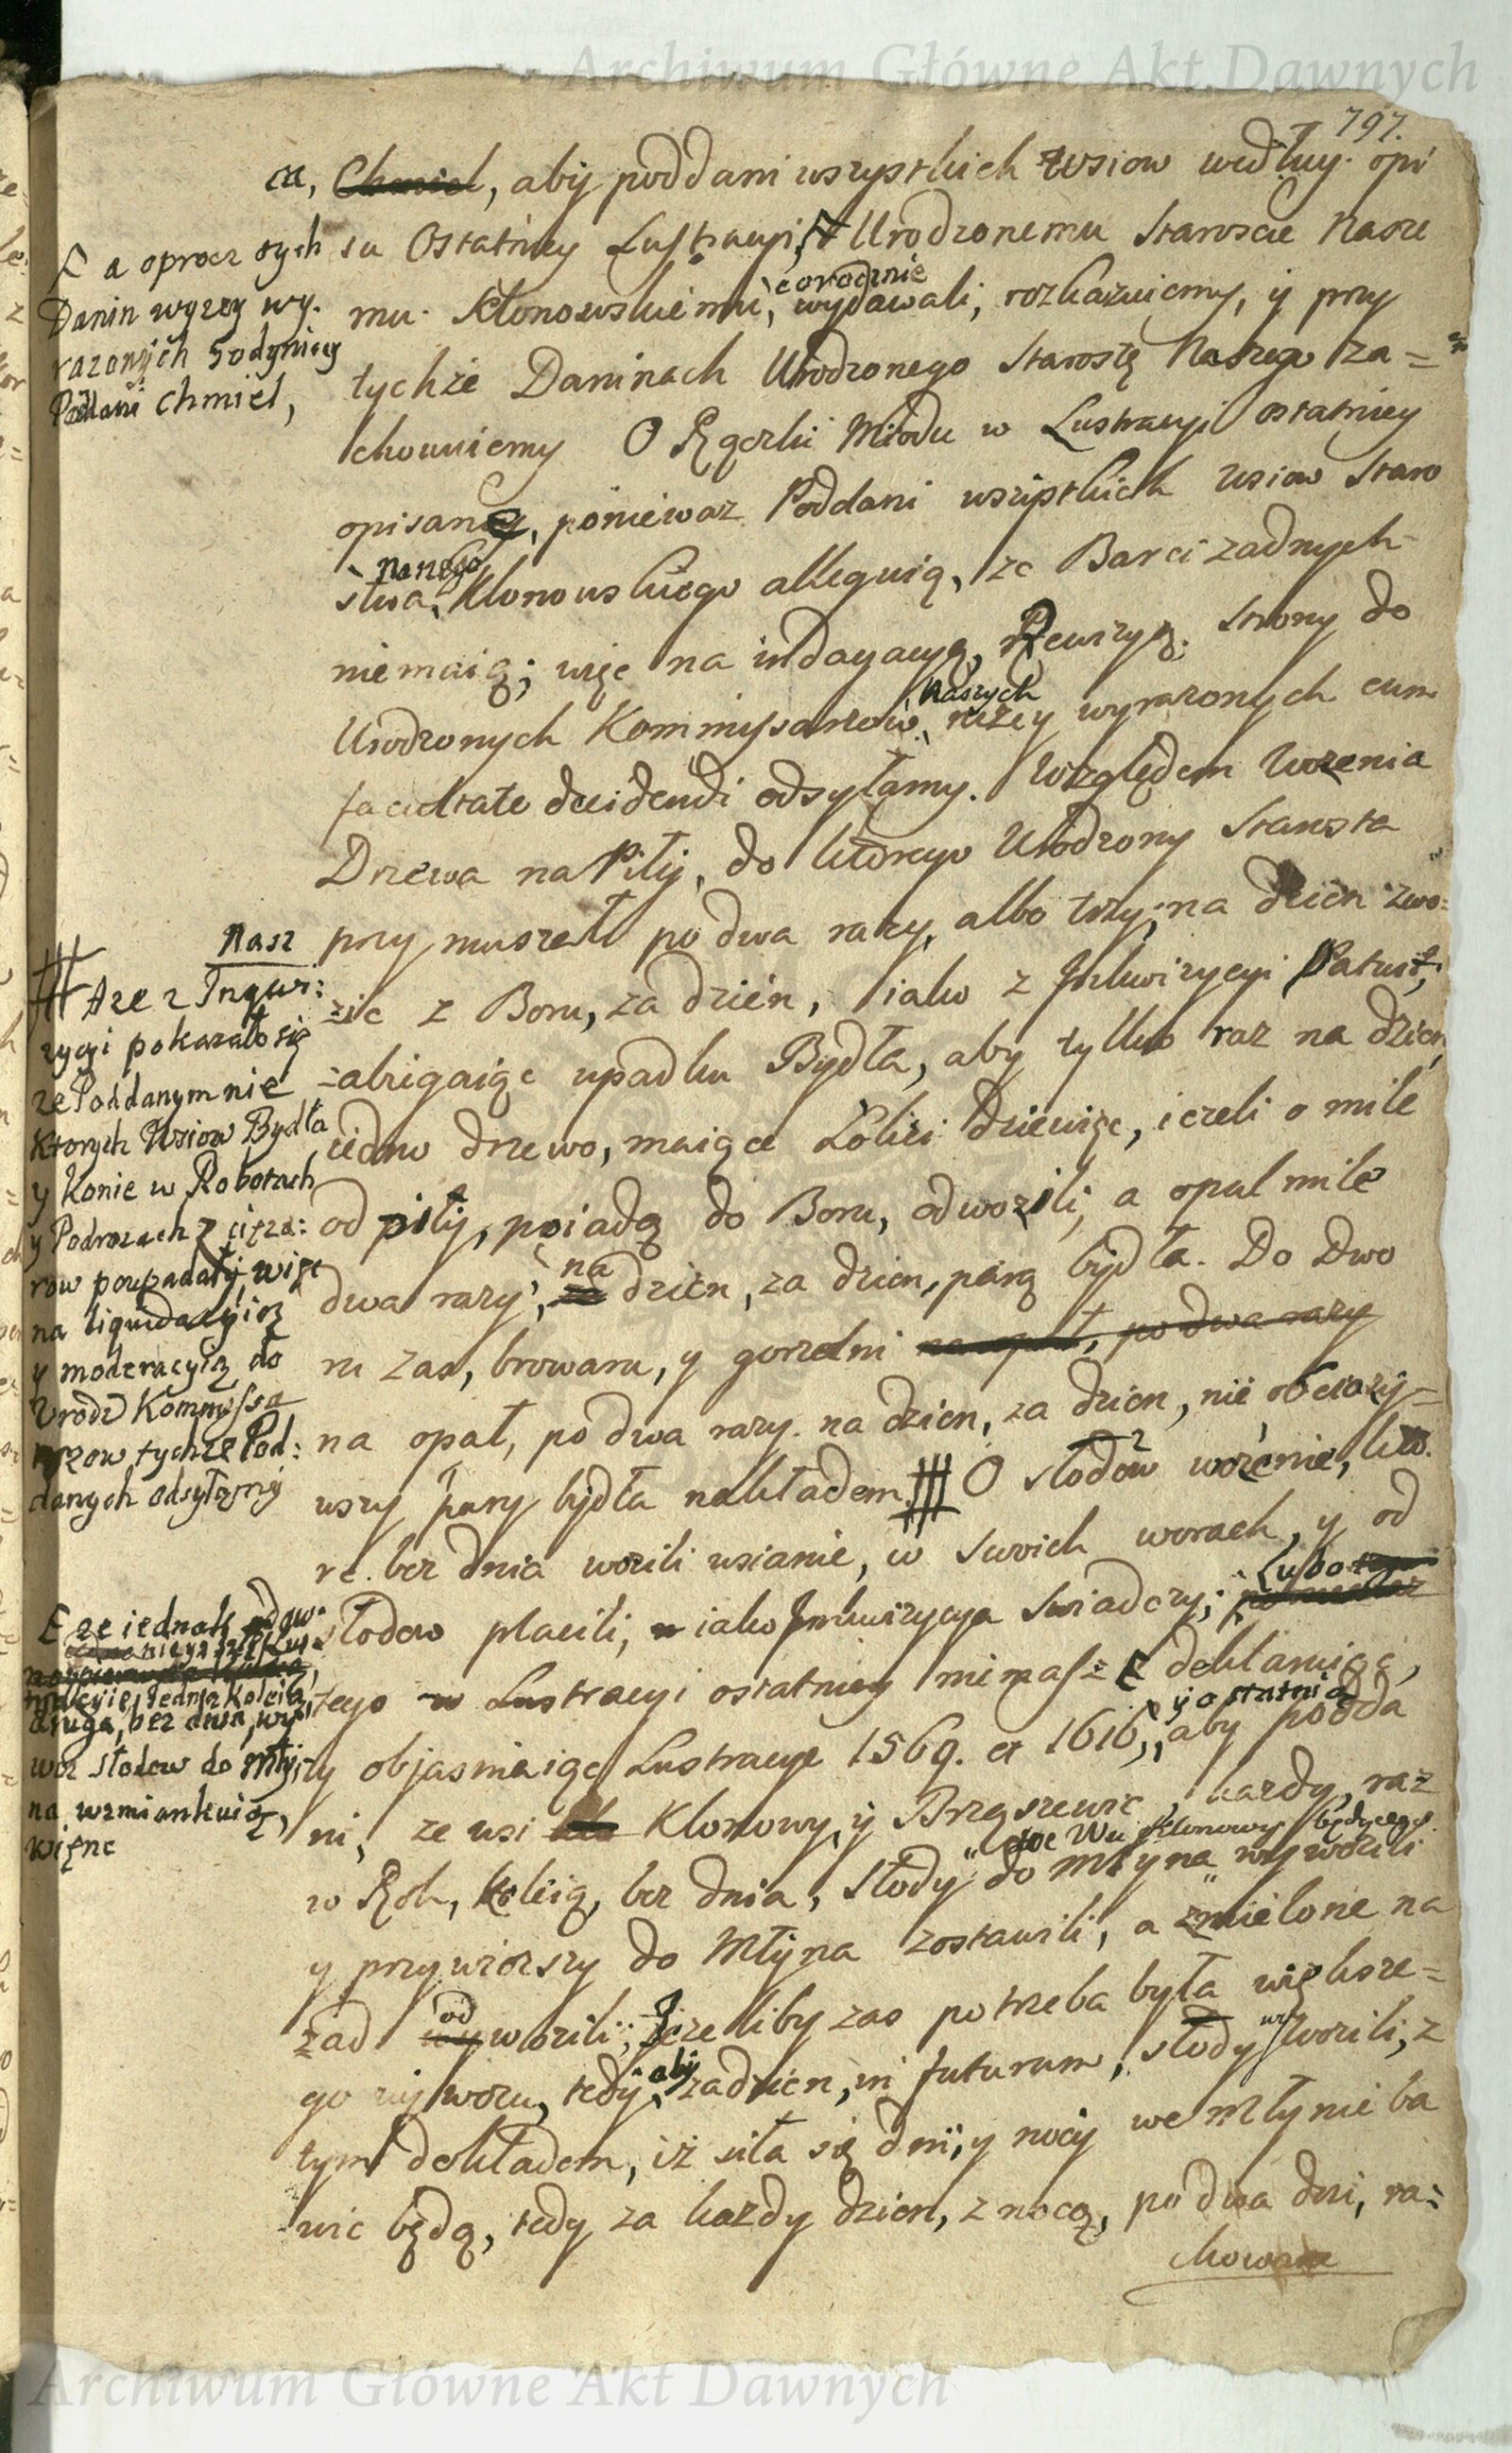 Archiwum Główne Akt Dawnych
797.
ca, Chmiel, aby poddani wszystkich wsiow według opi
su Ostatniey Lustracyi, Urodzonemu Staroscie Nasze
mu Klonowskiemu, corocznie wydawali, rozkazuiemy, y przy
tychże Daninach Urodzonego Starostę Naszego za=
chowuiemy O Rączki Miodu w Lustracyi ostatniey
opisaney, poniewaz Poddani wszystkich wsiow Staro
stwa, Naszego Klonowskiego alleguią, ze Barci zadnych
niemaią; więc na indagacyą, Rewizyą, strony do
Urodzonych Kommyssarzow, Naszych niżey wyrazonych cum
facultate decidendi odsyłamy. Względem Wozenia
Drzewa na Piły, do ktorego Urodzony Starosta
Nasz przymuszał po dwa razy, albo trzy, na dzien zwo=
zic z Boru, za dzień, iako z Inkwizycyi Patuit,
=abigaiąc upadku Bydła, aby tylko raz na dzien,
iedno drzewo, maiące Łokci dziewięc, iezeli o mile
od piły, poiadą do Boru, odwozili, a opal mile
dwa razy, na dzien, za dzien, parą bydła. Do Dwo
ru zas, browaru, y gorzelni na opał, po dwa razy
na opał, po dwa razy na dzien, za dzien, nie obciązy=
wszy pary bydła nakładem O słodow wożenie, kto
re bez dnia wozili wsianie, w swoich worach, y od
słodow płacili, iako Inkwizycya swiadczy, Lubo
tego w Lustracyi ostatniey nimasz deklaruiąc,
y objasniaiąc Lustracye 1569. et 1616, y ostatnią aby podda
ni, ze wsi Klonowy, y Brząszewic, kazdy, raz
w Rok, koleią, bez dnia, słody do Młyna we Wsi Klonowy będącego wywozili
y przywiozszy do Młyna zostawili, a zmielone na
zad odwozili; Jezeliby zas potrzeba była większe=
go wywozu, tedy, aby za dzien, in futurum, słody wozili, z
tym dokładem, iż siła się dni, y nocy we Młynie ba
wic będą, tedy za kazdy dzien, z nocą, po dwa dni, ra=
chowane
a oprocz tych
Danin wyzey wy=
razonych
Poddani Chmiel,
A ze z Inqui:
zycyi pokazało się
ze Poddanym nie
ktorych Wsiow Bydła
y Konie w Robotach
y Podrozach z cięza:
row poupadały, więc
na liquidacyią
y moderacyią do
Urodz Kommyssa
rzow tychze Pod:
danych odsyłamy
ze iednak
iedną koleią,
drugą, bez dnia, wy
woz słodow do Młyn
na wzmiankuią,
więnc
Archiwum Główne Akt Dawnych